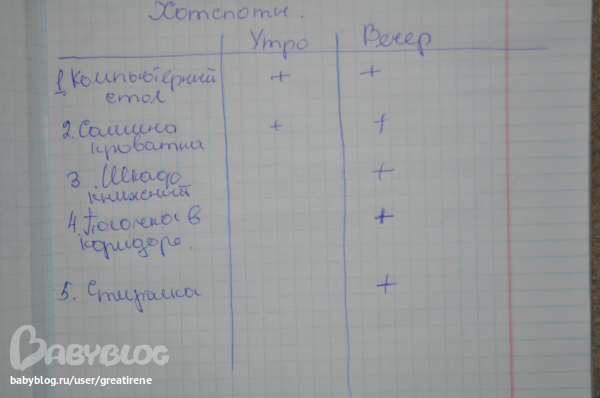 Хотспоты.
Утро Вечер
1 Компьютерный + +
стол
2. Сашина + +
кроватка
3. Шкаф +
книжный
4. Полочка в +
коридоре.
5. Стиралка +
BABYBLOG
babyblog.ru/user/greatirene